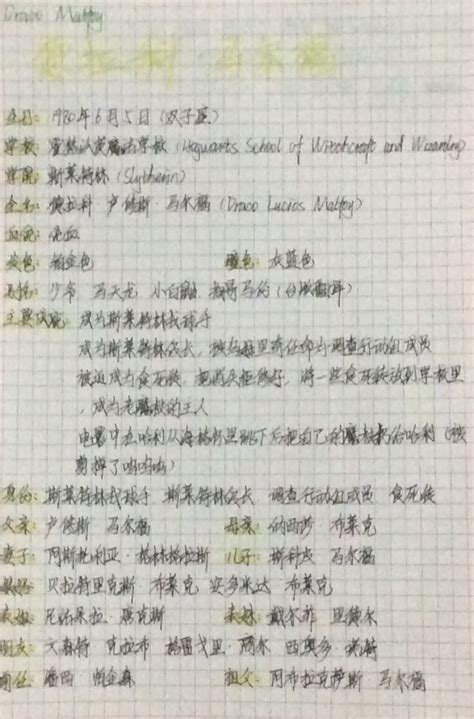 Draco Malfoy
德拉科 马尔福
生日：1980年6月5日（双子座）
学校：霍格沃茨魔法学校（Hogwarts School of Witchcraft and Wizardry）
学院：斯莱特林（Slytherin）
全名：德拉科·卢修斯·马尔福（Draco Lucios Malfoy）
血统：纯血
发色：铂金色 瞳色：灰蓝色
马天龙 小白鼬
主要成就：成为斯莱特林找球手
成为斯莱特林级长，被乌姆里奇任命为调查行动组成员
被迫成为食死徒，把消失柜修好，将一些食死徒放到学校里
，成为老魔杖的主人
电影中在哈利从海格怀里跳下后把自己的魔杖扔给哈利（被
剪掉了呜呜呜）
身份：斯莱特林找球手 斯莱特林级长 调查行动组成员 食死徒
父亲：卢修斯 马尔福 母亲：纳西莎 布莱克
妻子：阿斯托利亚·格林格拉斯 儿子：斯科皮 马尔福
姨妈：贝拉特里克斯 布莱克 安多米达 布莱克
表姐：尼法朵拉·唐克斯 表妹：戴尔菲 里德尔
朋友：文森特 克拉布 格雷戈里·高尔 西奥多·诺特
前任：潘西·帕金森 祖父：阿布拉克萨斯 马尔福